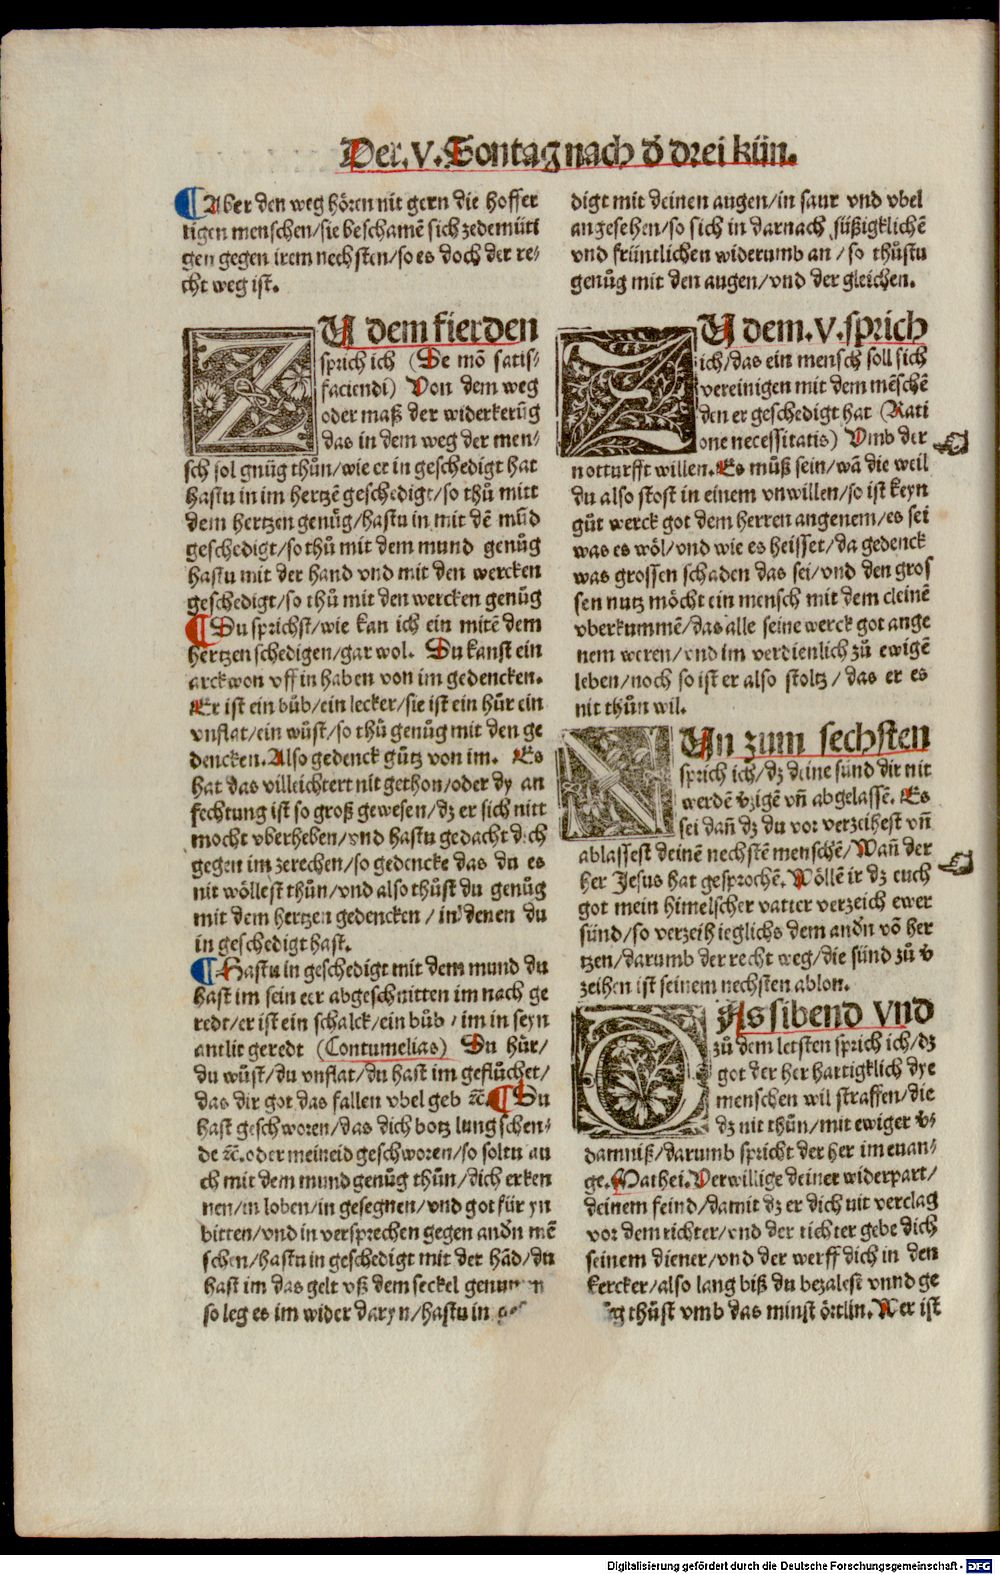 Der. V. Sontag nach d̕ drei kün.
¶ Aber den weg hören nit gern die hoffer
tigen menschen/sie beschamē sich zedemüti
gen gegen irem nechsten/so es doch der re⸗
cht weg ist.
ZU dem fierden
sprich ich (De mō satis⸗
faciendi) Von dem weg
oder maß der widerkerūg
das in dem weg der men⸗
sch sol gnůg thůn/wie er in geschedigt hat
hastu in im hertzē geschedigt/so thů mitt
dem hertzen genůg/hastu in mit dē mūd
geschedigt/so thů mit dem mund genůg
hastu mit der hand vnd mit den wercken
geschedigt/so thů mit den wercken genůg
¶ Du sprichst/wie kan ich ein mitē dem
hertzen schedigen/gar wol. Du kanst ein
arckwon vff in haben von im gedencken.
Er ist ein bůb/ein lecker/sie ist ein hůr ein
vnflat/ein wůst/so thů genůg mit den ge
dencken. Also gedenck gůtz von im. Es
hat das villeichtert nit gethon/oder dy an
fechtung ist so groß gewesen/dz er sich nitt
mocht vberheben/vnd hastu gedacht dich
gegen im zerechen/so gedencke das du es
nit wöllest thůn/vnd also thůst du genůg
mit dem hertzen gedencken/in denen du
in geschedigt hast.
¶ Hastu in geschedigt mit dem mund du
hast im sein eer abgeschnitten im nach ge
redt/er ist ein schalck/ein bůb/im in seyn
antlit geredt (Contumelias) Du hůr/
du wůst/du vnflat/du hast im geflůchet/
das dir got das fallen vbel geb ꝛc̄. ¶ Du
hast geschworen/das dich botz lung schen⸗
de ꝛc̄. oder meineid geschworen/so soltu au
ch mit dem mund genůg thůn/dich erken
nen/in loben/in gesegnen/vnd got für yn
bitten/vnd in versprechen gegen and̕n mē
schen/hastu in geschedigt mit der hād/du
hast im das gelt vß dem seckel genummen
so leg es im wider daryn/hastu in
digt mit deinen augen/in saur vnd vbel
angesehen/so sich in darnach süßigklichē
vnd früntlichen widerumb an/so thůstu
genůg mit den augen/vnd der gleichen.
ZU dem. V. sprich
ich/das ein mensch soll sich
vereinigen mit dem mēschē
den er geschedigt hat (Rati
one necessitatis) Vmb der
notturfft willen. Es můß sein/wā die weil
du also stost in einem vnwillen/so ist keyn
gůt werck got dem herren angenem/es sei
was es wöl/vnd wie es heisset/da gedenck
was grossen schaden das sei/vnd den gros
sen nutz möcht ein mensch mit dem cleinē
vberkummē/das alle seine werck got ange
nem weren/vnd im verdienlich zů ewigē
leben/noch so ist er also stoltz/das er es
nit thůn wil.
NUn zum sechsten
sprich ich/dz deine sünd dir nit
werdē v̕zigē vn̄ abgelassē. Es
sei dan̄ dz du vor verzeihest vn̄
ablassest deinē nechstē menschē/Wan̄ der
her Jesus hat gesprochē. Wöllē ir dz euch
got mein himelscher vatter verzeich ewer
sünd/so verzeih ieglichs dem and̕n vō her
tzen/darumb der recht weg/die sünd zů v̕
zeihen ist seinem nechsten ablon.
DAs sibend vnd
zů dem letsten sprich ich/dz
got der her hartigklich dye
menschen wil straffen/die
dz nit thůn/mit ewiger v̕⸗
damniß/darumb spricht der her im euan⸗
ge. Mathei. Verwillige deiner widerpart/
deinem feind/damit dz er dich nit verclag
vor dem richter/vnd der richter gebe dich
seinem diener/vnd der werff dich in den
kercker/also lang biß du bezalest vnnd ge
ůg thůst vmb das minst örtlin. Wer ist
Digitalisierung gefördert durch die Deutsche Forschungsgemeinschaft - DFG